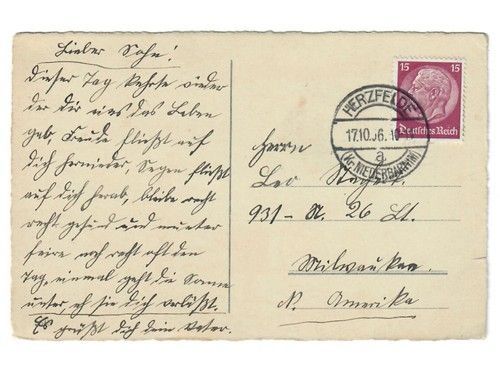 Lieber Sohn!
Dieser Tag kehrte wieder
der Dir einst das Leben
gab, Freude fließt auf
dich hernieder Segen fließt
auf dich herab, bleibe recht
recht gesund und munter
feire noch recht oft den
Tag, einmal geht die Sonne
unter, eh sie dich verläßt.
Es grüßt dich dein Vater.
15 15
Deutsches Reich
HERZFELDE
17.10.36.
a
(Kr. NIEDERBARNIM)
Herrn
Leo
931 - N. 26 St.
Milwaukee.
N. Amerika